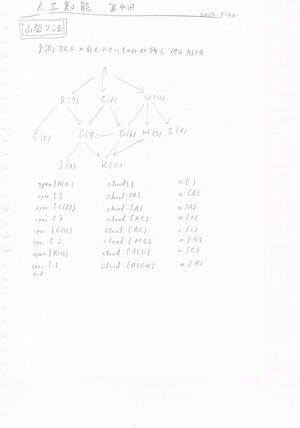 人工知能 第4回
山登り法
予測コストの最も小さいもののみ残し 他は
A
B(9) C(6) D(11)
E(5) F(8) G(6) H(3) I(6)
J(8) K(0)
open [A(0)] closed [] n:[]
open [] closed:[A] n:[A]
open:[C(6)] closed:[A] n:[A]
open:[] closed:[AC] n:[C]
open:[G(6)] closed:[AC] n:[C]
open:[] closed:[ACG] n:[G]
open:[K(0)] closed:[ACG] n:[G]
open:[] closed:[ACGK] n:[K]
end.